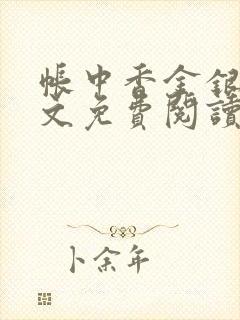 帳中香金銀
文免費閱讀
卜余年